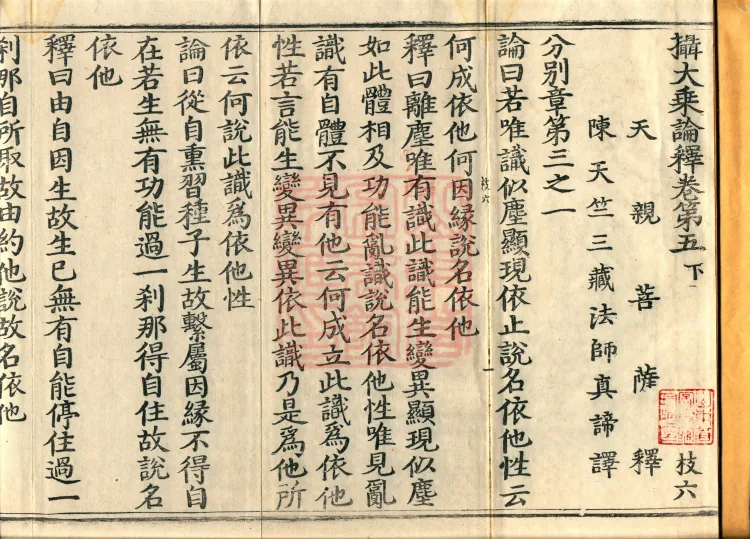 攝大乘論釋卷第五 下 枝六
天親菩薩釋
陳天竺三藏法師真諦譯
分別章第三之一
論曰若唯識似塵顯現依止說名依他性云
何成依他何因緣說名依他
枝六 一
釋曰離塵唯有識此識能生變異顯現似塵
如此體相及功能亂識說名依他性唯見亂
識有自體不見有他云何成立此識爲依他
性若言能生變異變異依此識乃是爲他所
依云何說此識爲依他性
論曰從自熏習種子生故繫屬因緣不得自
在若生無有功能過一刹那得自住故說名
依他
釋曰由自因生故生已無有自能停住過一
刹那自所取故由約他說故名依他